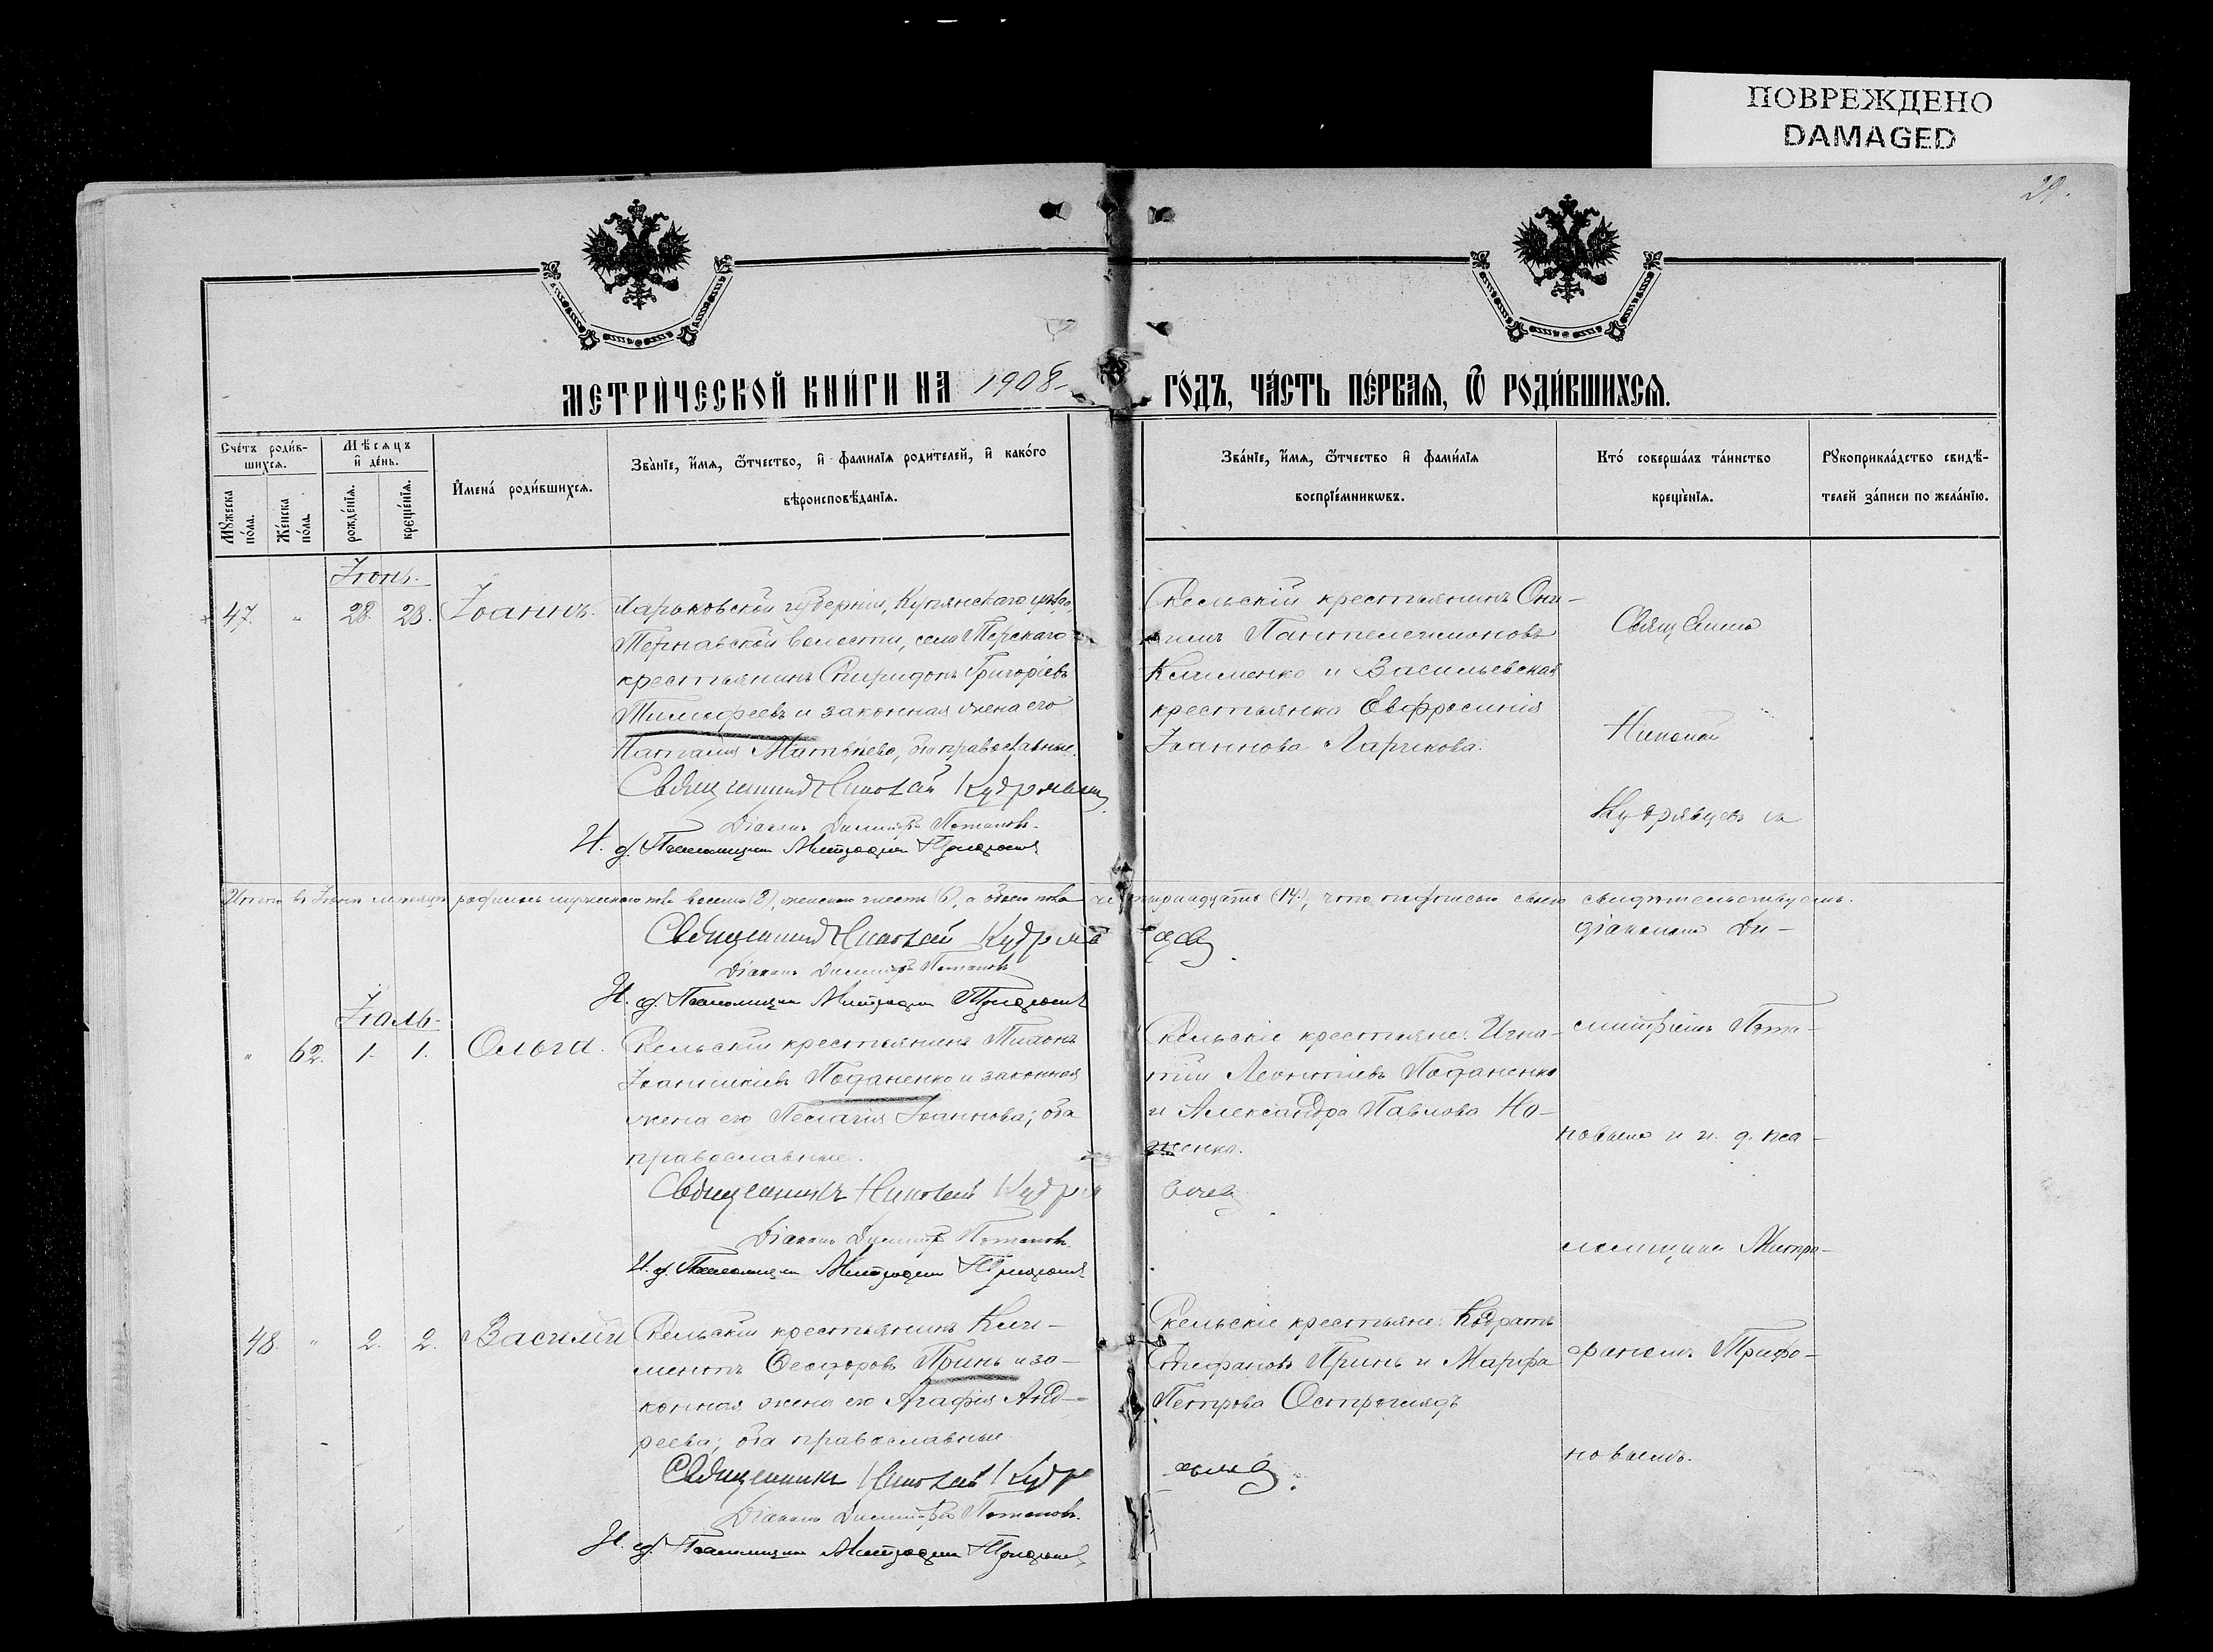 ПОВРЕЖДЕНО
DAMAGED
29.
МЕТРИ́ЧЕСКОЙ КНИ́ГИ НА 1908 ГО́ДЪ, ЧА́СТЬ ПЕ́РВАѦ, Ѡ҆ РОДИ́ВШИХСѦ.
Сче́тъ роди́в-
шихсѧ.
Мѣсѧцъ
и҆ де́нь.
Мꙋжеска по́ла.
Же́нска по́ла.
рожде́нїѧ.
креще́нїѧ.
И҆мена́ роди́вшихсѧ.
Зва́нїе, и҆́мѧ, ѻ҆́тчество, и҆ фами́лїѧ роди́телей, и҆ како́гѡ
вѣроисповѣ́данїѧ.
Зва́нїе, и҆́мѧ, ѻ҆́тчество и҆ фами́лїѧ
воспрїе́мникѡвъ.
Кто́ соверша́лъ та́инство
креще́нїѧ.
Рꙋкоприкла́дство свидѣ́-
телей за́писи по жела́нїю.
Іюнь.
47. " 28. 28. Іоаннъ.
Харьковской губерніи, Купянского уѣзда,
волости, села
крестьянинъ Спиридонъ Григоріевъ
Тимофеевъ и законная жена его
Наталія Матвѣева, оба православные.
Священникъ Николай Кудрявцевъ
Діаконъ Димитрій Потаповъ.
И. д. Псаломщика Митрофанъ Трифоновъ
Скельскій крестьянинъ Они-
симъ Пантелеимоновъ
Клименко и Васильевская
крестьянка Евфросинія
Іоаннова Ларикова.
Священникъ
Николай
Кудрявцевъ съ
Итого въ Іюнѣ мѣсяцѣ родилось мужескаго пола восемь (8), женскаго шесть (6), а обоего пола четырнадцать (14), что подписью своею свидѣтельствуемъ.
Священникъ Николай Кудрявцевъ
Діаконъ Димитрій Потаповъ
И. д. Псаломщика Митрофанъ Трифоновъ
діакономъ Ди-
Іюль.
" 62. 1. 1. Ольга.
Скельскій крестьянинъ Тихонъ
Іоанникіевъ Поданенко и законная
жена его Пелагія Іоаннова; оба
православные.
Священникъ Николай Кудрявцевъ
Діаконъ Димитрій Потаповъ.
И. д. Псаломщика Митрофанъ Трифоновъ
Скельскіе крестьяне: Игна-
тій Леонтіевъ Поданенко
и Александра Павлова Но-
женко.
митріемъ Пота-
повымъ и и. д. пса-
ломщика Митро-
48. " 2. 2. Василій
Скельскій крестьянинъ Кли-
ментъ Ѳеодоровъ Принь и за-
конная жена его Агафія Анд-
реева; оба православные.
Священникъ Николай Кудрявцевъ
Діаконъ Димитрій Потаповъ.
И. д. Псаломщика Митрофанъ Трифоновъ
Скельскіе крестьяне: Кодратъ
Стефановъ Принь и Марфа
Петрова Остроглядъ
фаномъ Трифо-
новымъ.